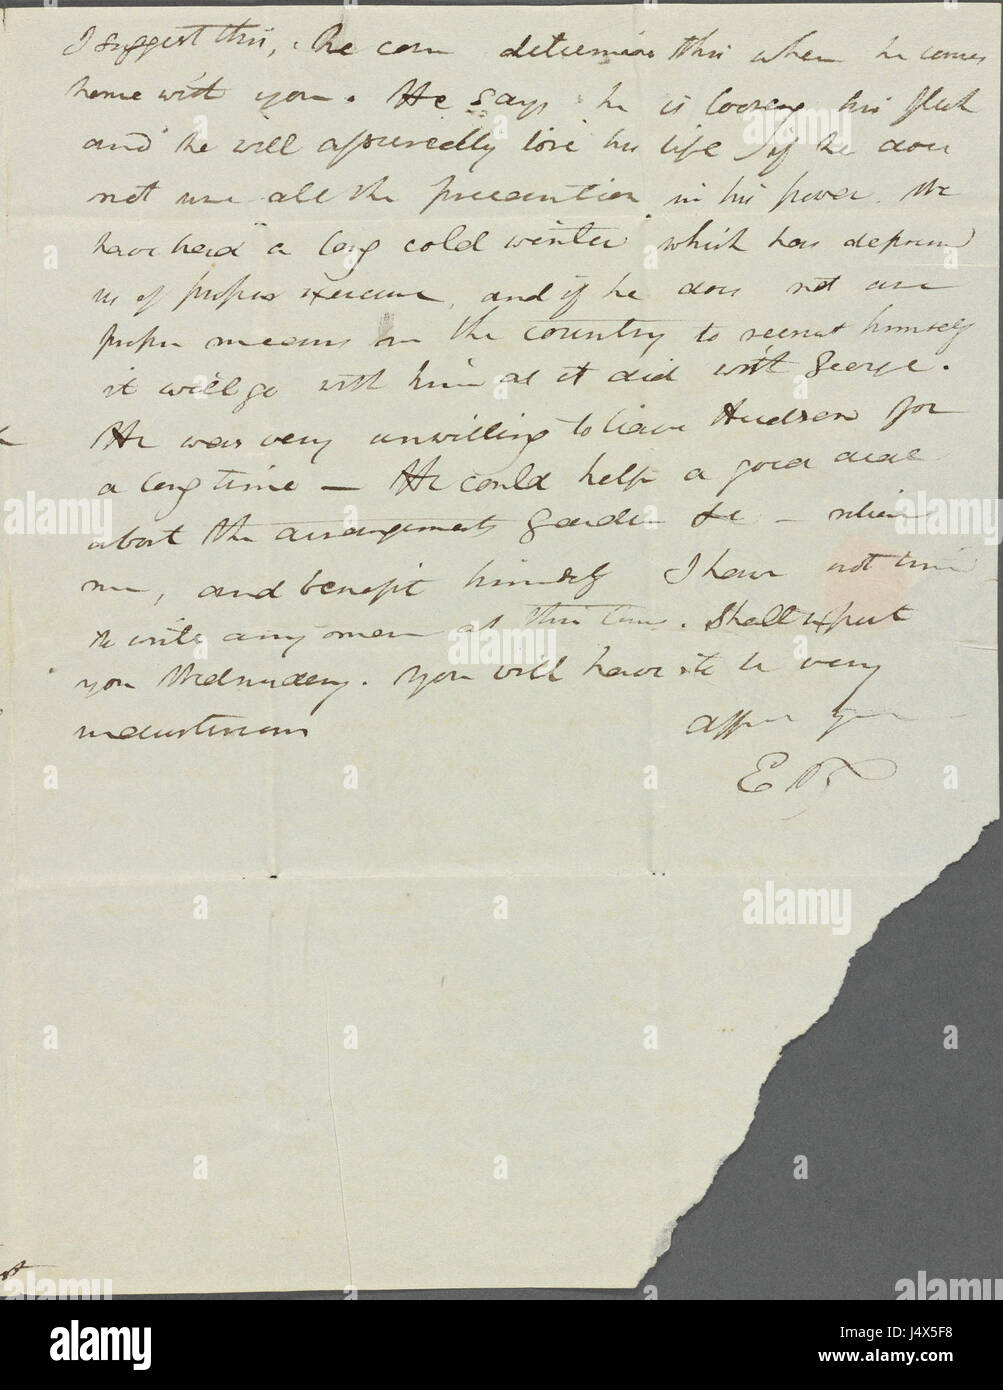 I suggest this, he can determine this when he comes
home with you. He says he is loosing his flesh
and he will assuredly lose his life if he does
not use all the precaution in his power. We
have had a long cold winter which has deprived
us of proper exercise, and if he does not use
proper means in the country to recruit himself
it will go with him as it did with George.
He was very unwilling to leave Hudson for
a long time — He could help a good deal
about the arrangements garden &c — relieve
me, and benefit himself I have not time
to write any more at this time. Shall expect
you Wednesday. You will have to be very
industrious
affec yours
E
alamy
Image ID: J4X5F8
www.alamy.com